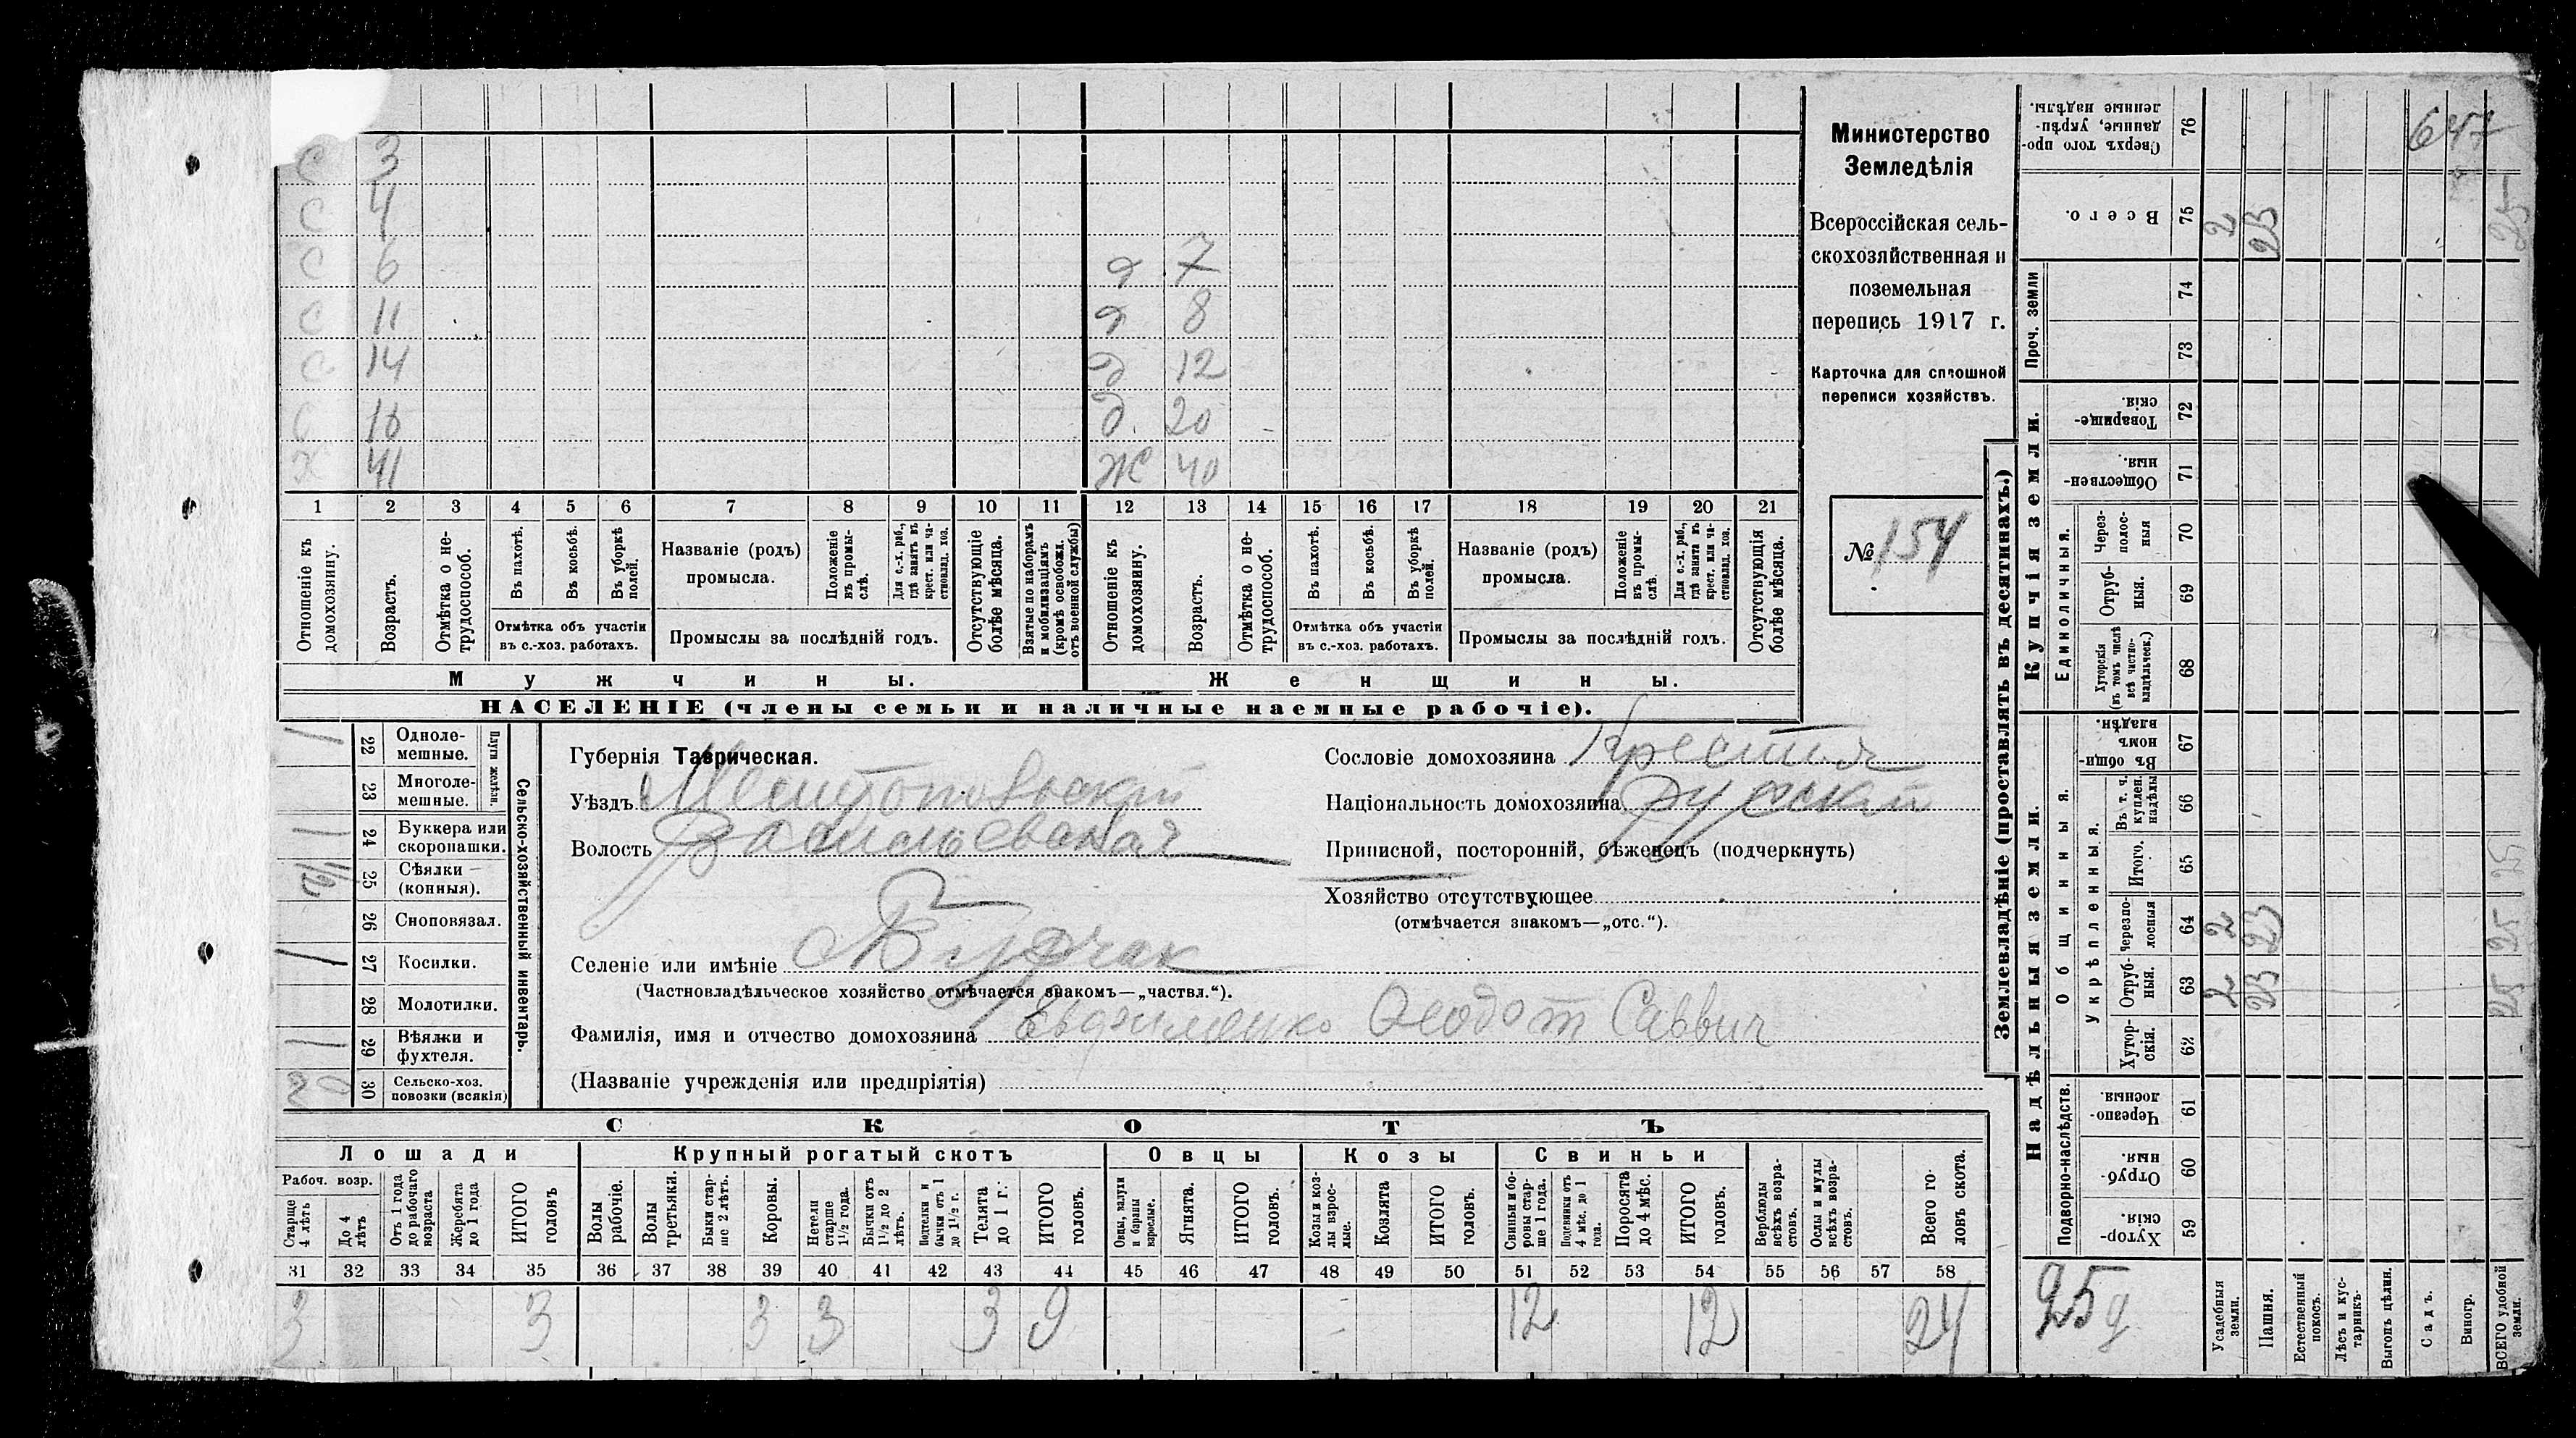 С 3
С 4
С 6 д 7
С 11 д 8
С 14 д 12
С 16 д 20
Х 41 Ж 40
1 2 3 4 5 6 7 8 9 10 11 12 13 14 15 16 17 18 19 20 21
Отношеніе къ домохозяину.
Возрастъ.
Отмѣтка о не-
трудоспособ.
Въ пахотѣ.
Въ косьбѣ.
Въ уборкѣ
полей.
Отмѣтка объ участіи
въ с.-хоз. работахъ.
Названіе (родъ)
промысла.
Положеніе
въ промы-
слѣ.
Для с.-х. раб.,
гдѣ занятъ въ
крест. или ча-
стновлад. хоз.
Промыслы за послѣдній годъ.
Отсутствующіе
болѣе мѣсяца.
Взятые по наборамъ
и мобилизаціямъ
(кромѣ освобожд.
отъ военной службы)
Отношеніе къ
домохозяину.
Возрастъ.
Отмѣтка о не-
трудоспособ.
Въ пахотѣ.
Въ косьбѣ.
Въ уборкѣ
полей.
Отмѣтка объ участіи
въ с.-хоз. работахъ.
Названіе (родъ)
промысла.
Положеніе
въ промы-
слѣ.
Для с.-х. раб.,
гдѣ занята въ
крест. или ча-
стновлад. хоз.
Промыслы за послѣдній годъ.
Отсутствующія
болѣе мѣсяца.
Мужчины.
Женщины.
НАСЕЛЕНІЕ (члены семьи и наличные наемные рабочіе).
Министерство
Земледѣлія
Всероссійская сель-
скохозяйственная и
поземельная
перепись 1917 г.
Карточка для сплошной
переписи хозяйствъ.
№ 154
Сельско-хозяйственный инвентарь.
Плуги желѣзн.
1 22 Одноле-
мешные.
23 Многоле-
мешные.
1 24 Буккера или
скоропашки.
25 Сѣялки
(конныя).
26 Сноповязал.
1 27 Косилки.
28 Молотилки.
1 29 Вѣялки и
фухтеля.
30 Сельско-хоз.
повозки (всякія)
Губернія Таврическая.
Уѣздъ Мелитопольскій
Волость Васильевская
Селеніе или имѣніе Бурчак
(Частновладѣльческое хозяйство отмѣчается знакомъ—„частвл.“).
Фамилія, имя и отчество домохозяина Евдокименко Ѳеодот Саввич
(Названіе учрежденія или предпріятія)
Сословіе домохозяина Крестья
Національность домохозяина русскій
Приписной, посторонній, бѣженецъ (подчеркнуть)
Хозяйство отсутствующее
(отмѣчается знакомъ—„отс.“).
СКОТЪ
Лошади
Крупный рогатый скотъ
Овцы
Козы
Свиньи
Рабоч. возр.
Старше
4 лѣтъ
До 4
лѣтъ
Отъ 1 года
до рабочаго
возраста
Жеребята
до 1 года
ИТОГО
головъ
Волы
рабочіе.
Волы
третьяки.
Быки стар-
ше 2 лѣтъ.
Коровы.
Нетели
старше
1½ года.
Бычки отъ
1½ до 2
лѣтъ.
Подтелки и
бычки отъ 1
до 1½ г.
Телята
до 1 г.
ИТОГО
головъ.
Овцы, валухи
и бараны
взрослые.
Ягнята.
ИТОГО
головъ.
Козы и коз-
лы взрос-
лые.
Козлята
ИТОГО
головъ.
Свиньи и бо-
ровы стар-
ше 1 года.
Подсвинки отъ
4 мѣс. до 1
года.
Поросята
до 4 мѣс.
ИТОГО
головъ.
Верблюды
всѣхъ возра-
стовъ.
Ослы и мулы
всѣхъ возра-
стовъ.
Всего го-
ловъ скота.
31 32 33 34 35 36 37 38 39 40 41 42 43 44 45 46 47 48 49 50 51 52 53 54 55 56 57 58
3 3 3 3 3 9 12 12 24
Землевладѣніе (проставлять въ десятинахъ.)
Купчія земли.
Надѣльныя земли.
Проч. земли
Единоличныя.
Общинныя.
Укрѣпленныя.
Подворно-наслѣдств.
Сверхъ того про-
данные, укрѣп-
ленные надѣлы. 76
Всего. 75 2 23 25
74
73
Товарище-
скія. 72
Обществен-
ныя. 71
Через-
полос-
ныя 70
Отруб-
ныя. 69
Хуторскія
(въ томъ числѣ
всѣ частно-
владѣльческ.) 68
Въ общи-
номъ
владѣн. 67
Въ т. ч.
куплен.
надѣлы 66
Итого. 65 25
Черезпо-
лосныя 64 2 23 25
Отруб-
ныя. 63 2 23 25
Хутор-
скія. 62
Черезпо-
лосныя. 61
Отруб-
ныя. 60
Хутор-
скія. 59
25 д
Усадебныя
земли.
Пашня.
Естественный
покосъ.
Лѣсъ и кус-
тарникъ.
Выгонъ цѣлин.
Садъ.
Виногр.
ВСЕГО удобной
земли.
647